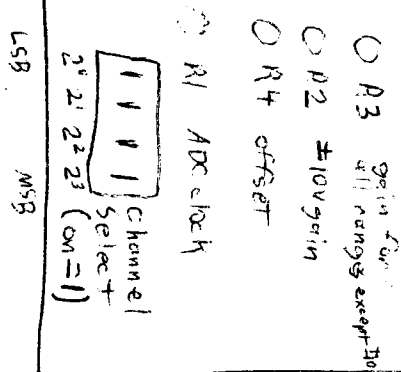 R3 gain for
all ranges except ±10
R2 ±10V gain
R4 offset
R1 ADC clock
Channel
Select
(on=1)
2⁰ 2¹ 2² 2³
LSB MSB